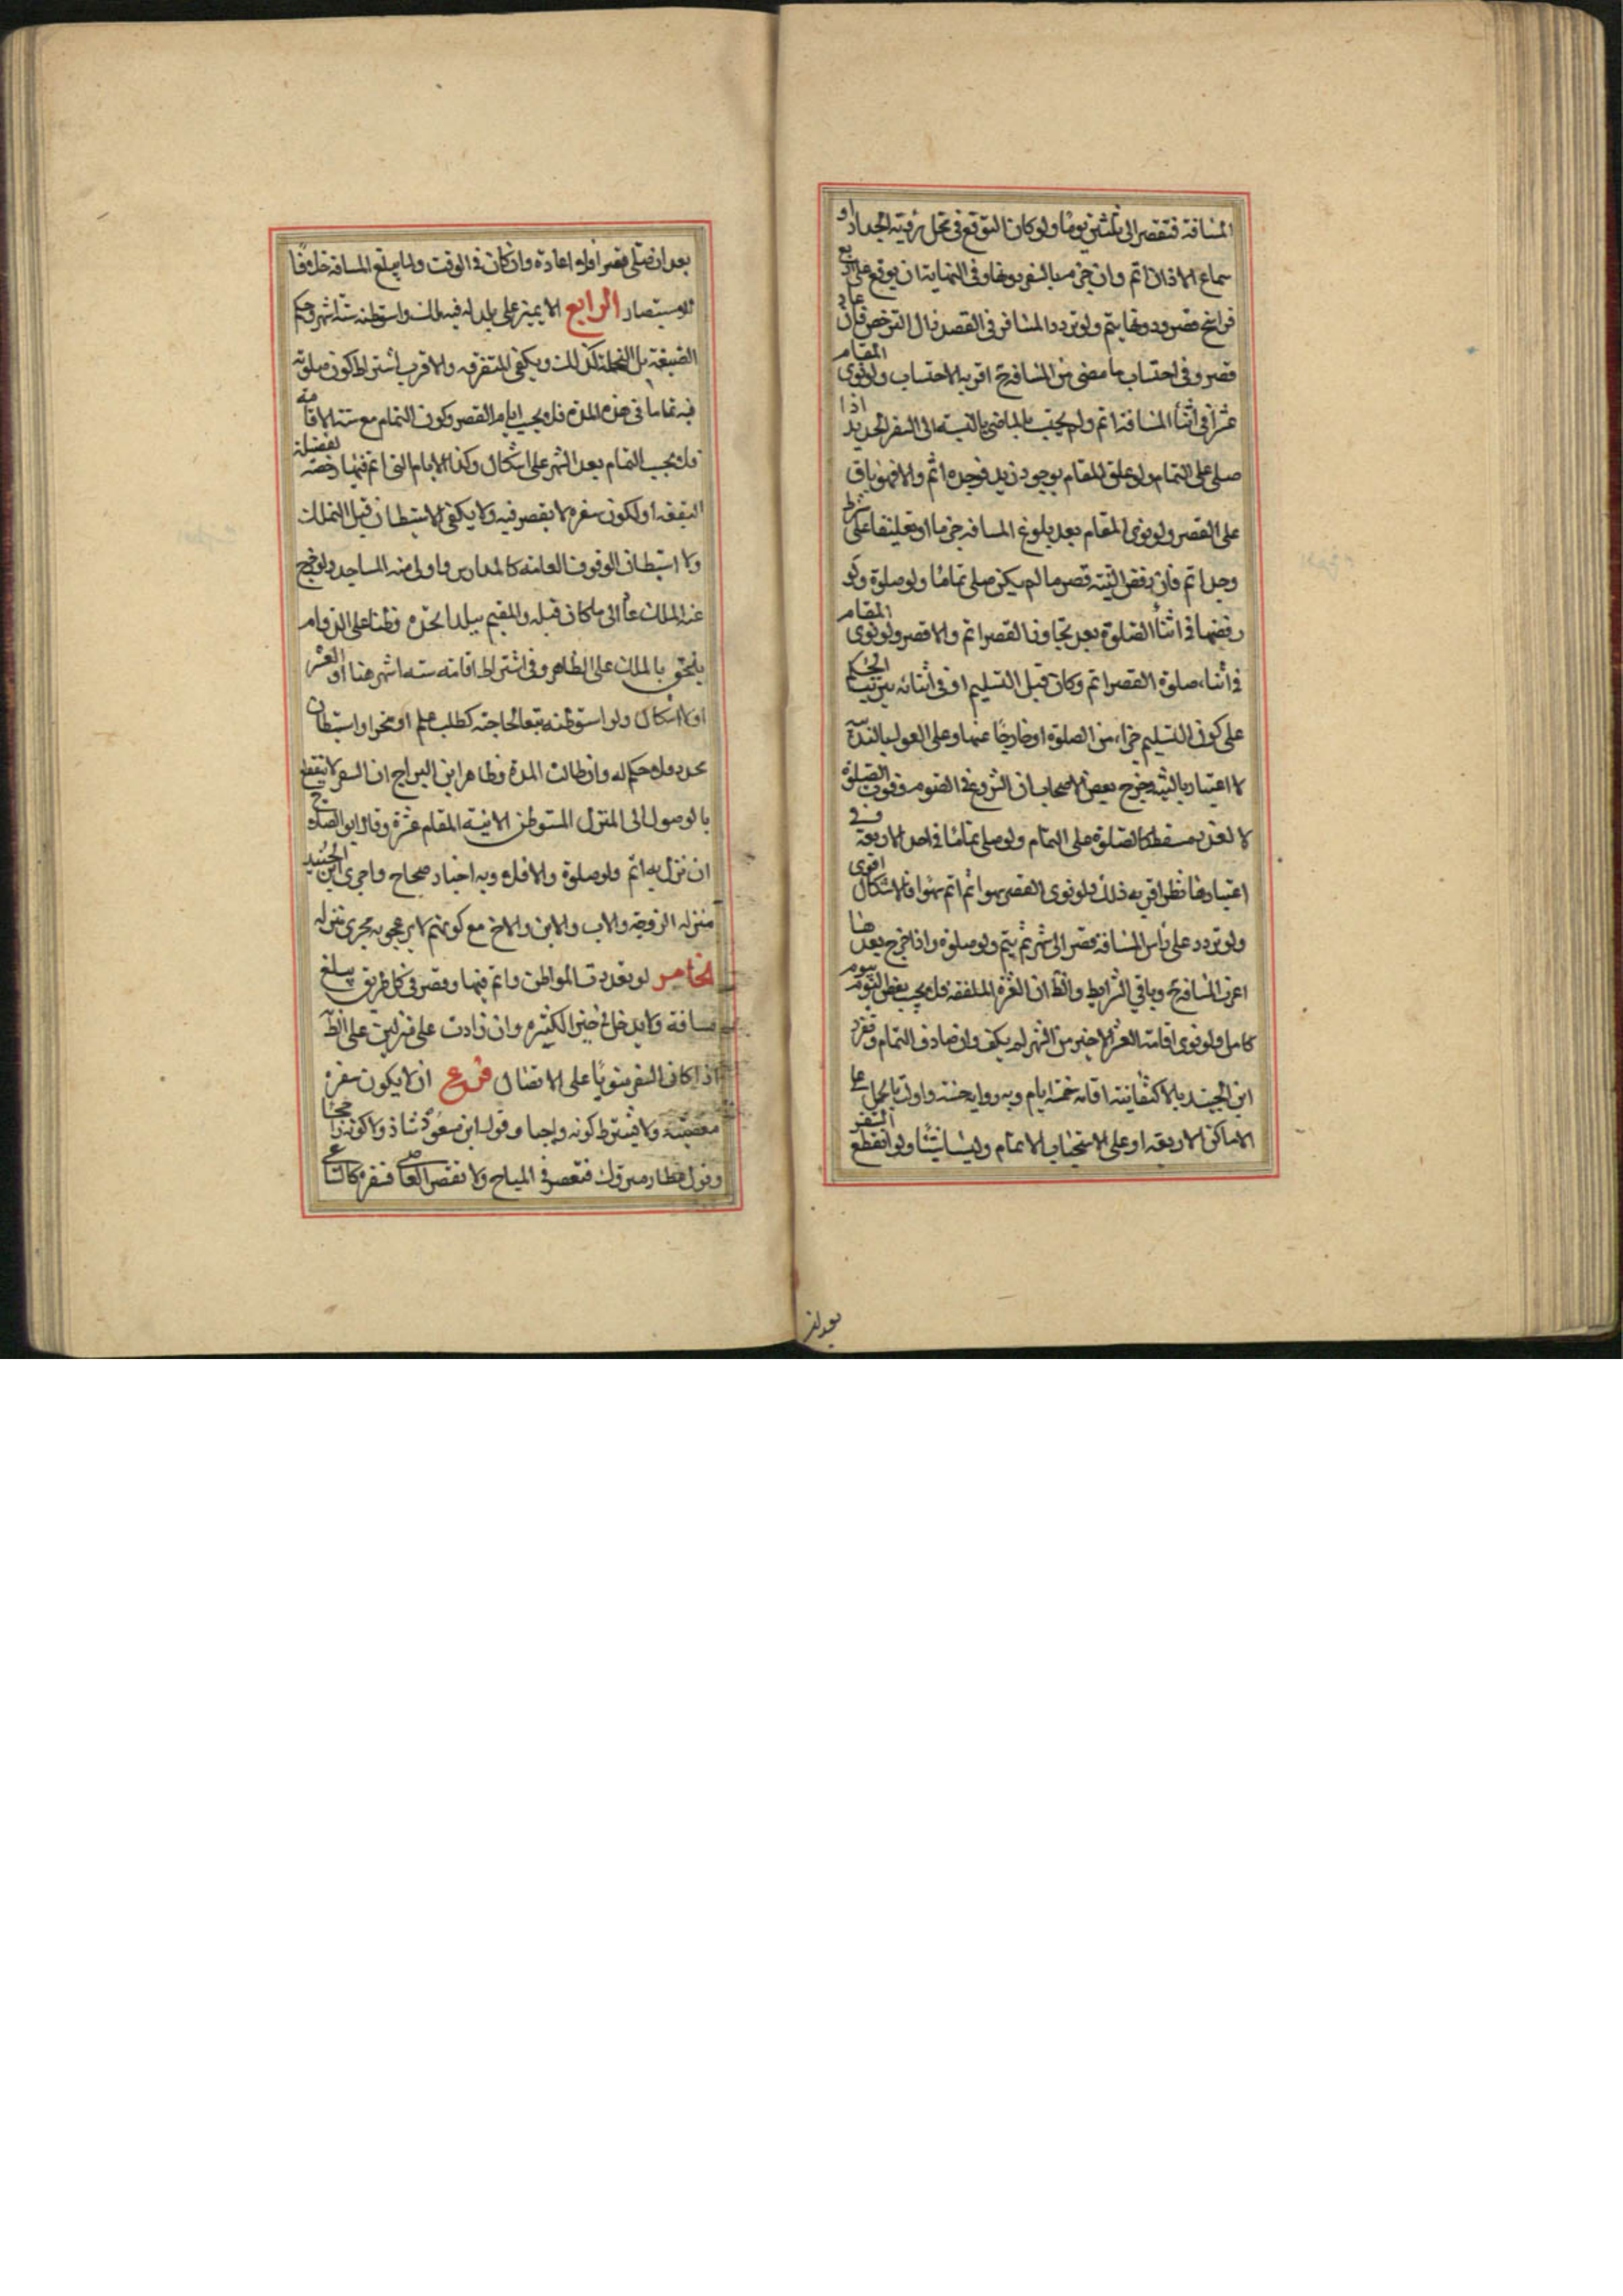 المسافة فتقصر الى ثلثين يوما ولو كان التوقع في محل رؤية الجدار او
سماع الاذان اتم وان جزم بالسفر دونها وفي النهاية ان توقع على اربع
فراسخ قصر ودونها يتم ولو تردد المسافر في القصد زال الترخص فان عاد
قصر وفي احتساب ما مضى من المسافة اقربه الاحتساب ولو نوى المقام
عشرا في اثناء المسافة اتم ولم يحتسب بالماضي بالنسبة الى السفر الجديد اذا
صلى على التمام ولو علق المقام بوجود زيد فوجده اتم والا فهو باق
على القصر ولو نوى المقام بعد بلوغ المسافة جزما او تعليقا على شرط
وجد اتم فان رفض النية قصر ما لم يكن صلى تماما ولو صلوة ولو
رفضها في اثناء الصلوة بعد تجاوز القصر اتم والا قصر ولو نوى المقام
في اثناء صلوة القصر اتم ولو كان قبل التسليم او في اثنائه
على كون التسليم جزءا من الصلوة او خارجا عنها وعلى القول بالندب
لا اعتبار بالنية وخرج بعض الاصحاب ان الشروع في الصوم وفوت الصلوة
لا لعذر مسقط كالصلوة على التمام ولو صلى تماما في احد الاربعة ففي
اعتبارها نظر اقربه ذلك ولو نوى القصر سهوا ثم اتم سهوا فالاشكال اقوى
ولو تردد على رأس المسافة قصر الى شهر ثم يتم ولو صلوة واذا خرج بعدها
اعتبر المسافة وباقي الشرايط والظ ان العشرة الملفقة فلا يحسب بعض اليوم بيوم
كامل ولو نوى اقامة العشر الاخير من الشهر لم يكف وان صادف التمام وتفرد
ابن الجنيد بالاكتفاء بنية اقامة خمسة ايام وبه رواية حسنة واولت بالحمل على
الاماكن الاربعة او على الاستحباب الاتمام وليسا شيئا ولو انقطع السفر
بعد ان
بعد ان صلى قصرا فلا اعادة وان كان في الوقت ولما يبلغ المسافة خلافا
للاستبصار الرابع الا يمر على بلد له فيه ملك واستوطنه ستة اشهر وحكم
الضيعة بل النخلة كذلك ويكفي المتفرقة والاقرب اشتراط كون صلوته
فيه تماما في هذه المدة فلا يحسب ايام القصر وكون التمام مع نية الاقامة
فلا يحسب التمام بعد الشهر على اشكال وكذا الايام التي اتم فيها رخصة لفضيلة
البقعة او لكون سفره لا يقصر فيه ولا يكفي الاستيطان قبل التملك
ولا استيطان الوقوف العامة كالمدارس واولى منه المساجد ولو خرج
عنه الملك عاد الى ما كان قبله والمقيم ببلد اتخذه وطنا على الدوام
يلحق بالملك على الظاهر وفي اشتراط اقامته ستة اشهر هنا او العشر
او لا اشكال ولو استوطنه تبعا لحاجته كطلب علم او متجر او استيطان
محدد فلا حكم له وان طالت المدة وظاهر ابن البراج ان السفر لا ينقطع
بالوصول الى المنزل المستوطن الا بنية المقام عشرة وقال ابو الصلاح
ان نزل به اتم ولو صلوة والا فلا وبه اخبار صحاح واجرى ابن الجنيد
منزل الزوجة والاب والابن والاخ مع كونهم لا يزعجونه مجرى منزله
الخامس لو تعددت المواطن واتم فيها وقصر في كل طريق يبلغ
مسافة ولا يدخل في حيز الكثيرة وان زادت على منزلين على الظ
اذا كان السفر منويا على الاتصال فروع ان لا يكون سفره
معصية ولا يشترط كونه واجبا وقول ابن مسعود شاذ ولا كونه راجحا
وقول عطا متروك فتقصر في المباح ولا تقصر العاصي بسفره